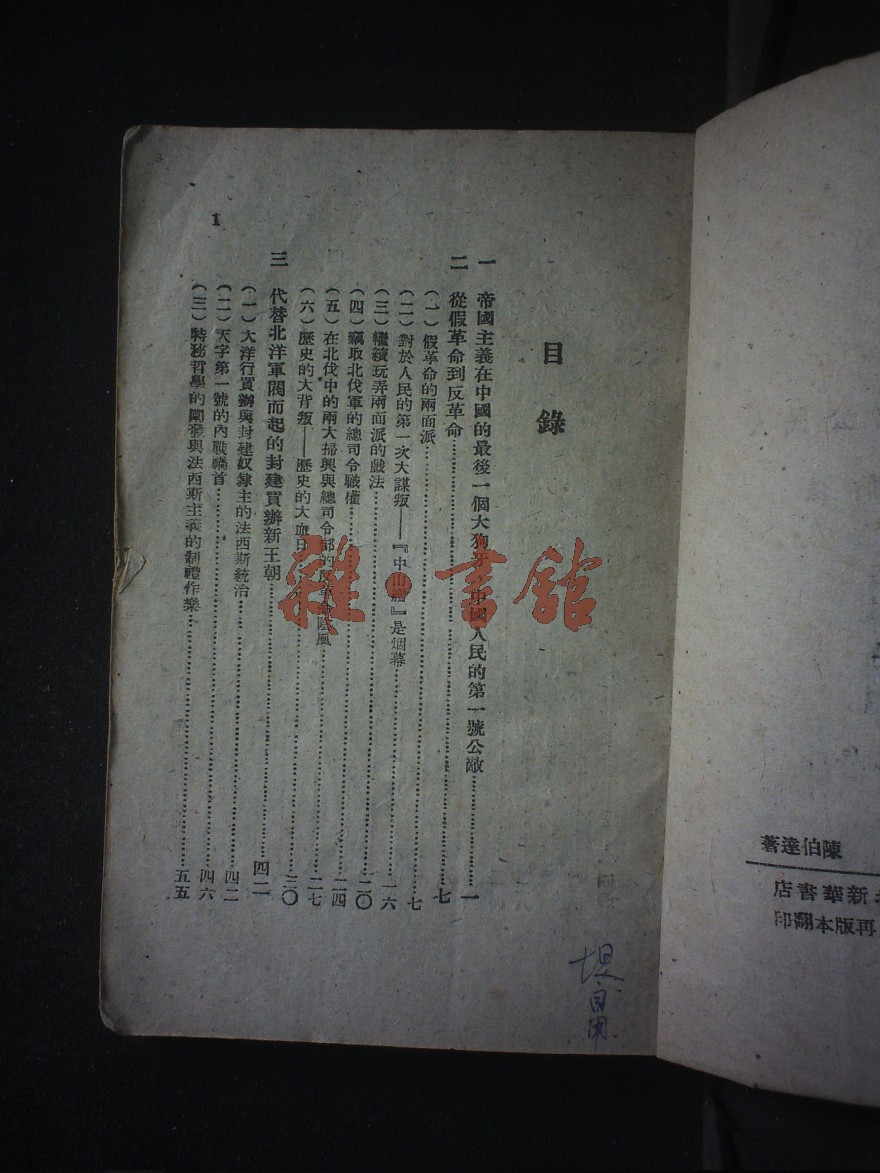 陳伯達著
新華書店
再版本翻印
目錄
一 帝國主義在中國的最後一個大狗牙,中國人民的第一號公敵……一
二 從假革命到反革命……七
(一)假革命的兩面派……七
(二)對於人民的第一次大謀叛——『中山艦』是烟幕……一六
(三)繼續玩弄兩面派的戲法……二〇
(四)竊取北伐軍的總司令職權……二四
(五)在北伐中的兩大掃興與總司令部的反革命陰風……二七
(六)歷史的大背叛——歷史的大血日……三〇
三 代替北洋軍閥而起的封建買辦新王朝……四二
(一)大洋行買辦與封建奴隸主的法西斯統治……四二
(二)天字第一號的內戰禍首……四六
(三)特務哲學的闡發與法西斯主義的制禮作樂……五五
1
自用
雜·書館